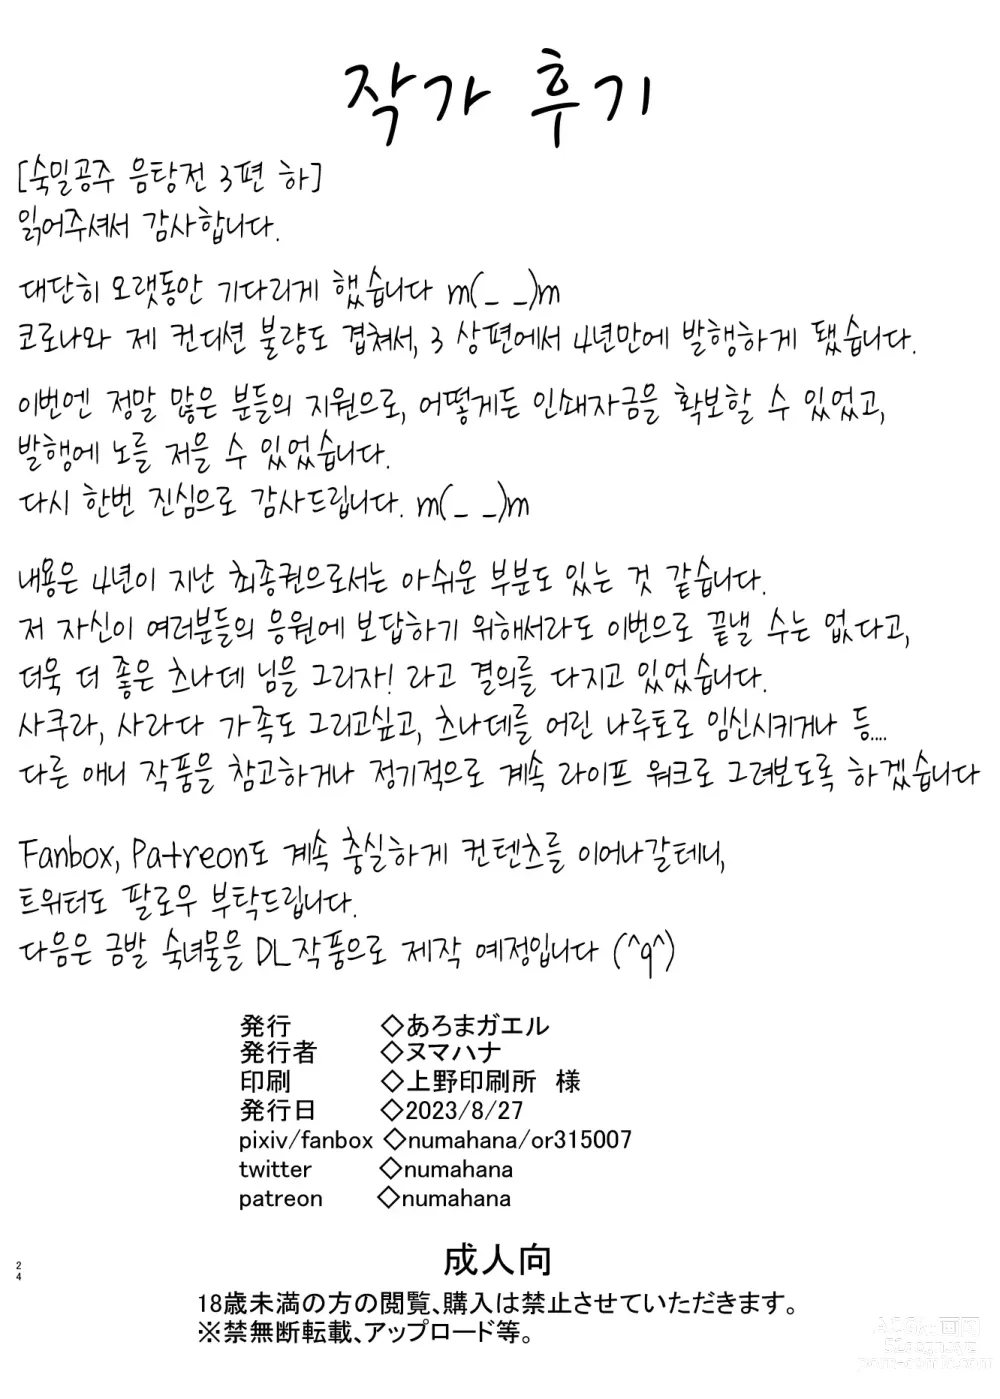 작가 후기
[숙밀공주 음탕전 3편 하]
읽어주셔서 감사합니다.
대단히 오랫동안 기다리게 했습니다 m(_ _)m
코로나와 제 컨디션 불량도 겹쳐서, 3 상편에서 4년만에 발행하게 됐습니다.
이번엔 정말 많은 분들의 지원으로, 어떻게든 인쇄자금을 확보할 수 있었고,
발행에 노를 저을 수 있었습니다.
다시 한번 진심으로 감사드립니다. m(_ _)m
내용은 4년이 지난 최종권으로서는 아쉬운 부분도 있는 것 같습니다.
저 자신이 여러분들의 응원에 보답하기 위해서라도 이번으로 끝낼 수는 없다고,
더욱 더 좋은 츠나데 님을 그리자! 라고 결의를 다지고 있었습니다.
사쿠라, 사라다 가족도 그리고싶고, 츠나데를 어린 나루토로 임신시키거나 등....
다른 애니 작품을 참고하거나 정기적으로 계속 라이프 워크로 그려보도록 하겠습니다
Fanbox, Patreon도 계속 충실하게 컨텐츠를 이어나갈테니,
트위터도 팔로우 부탁드립니다.
다음은 금발 숙녀물을 DL작품으로 제작 예정입니다 (^q^)
発行 ◇あろまガエル
発行者 ◇ヌマハナ
印刷 ◇上野印刷所 様
発行日 ◇2023/8/27
pixiv/fanbox ◇numahana/or315007
twitter ◇numahana
patreon ◇numahana
成人向
18歳未満の方の閲覧、購入は禁止させていただきます。
※禁無断転載、アップロード等。
24